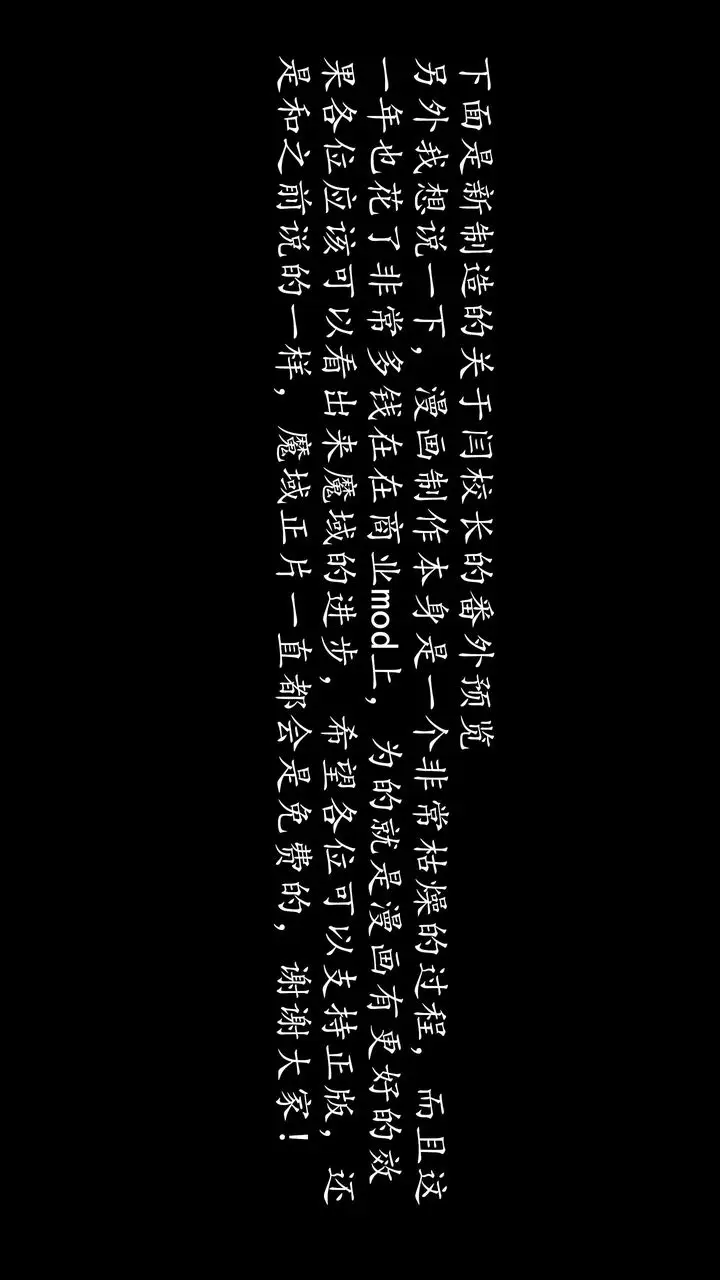 下面是新制造的关于闫校长的番外预览
另外我想说一下，漫画制作本身是一个非常枯燥的过程，而且这
一年也花了非常多钱在在商业mod上，为的就是漫画有更好的效
果各位应该可以看出来魔域的进步，希望各位可以支持正版，还
是和之前说的一样，魔域正片一直都会是免费的，谢谢大家！